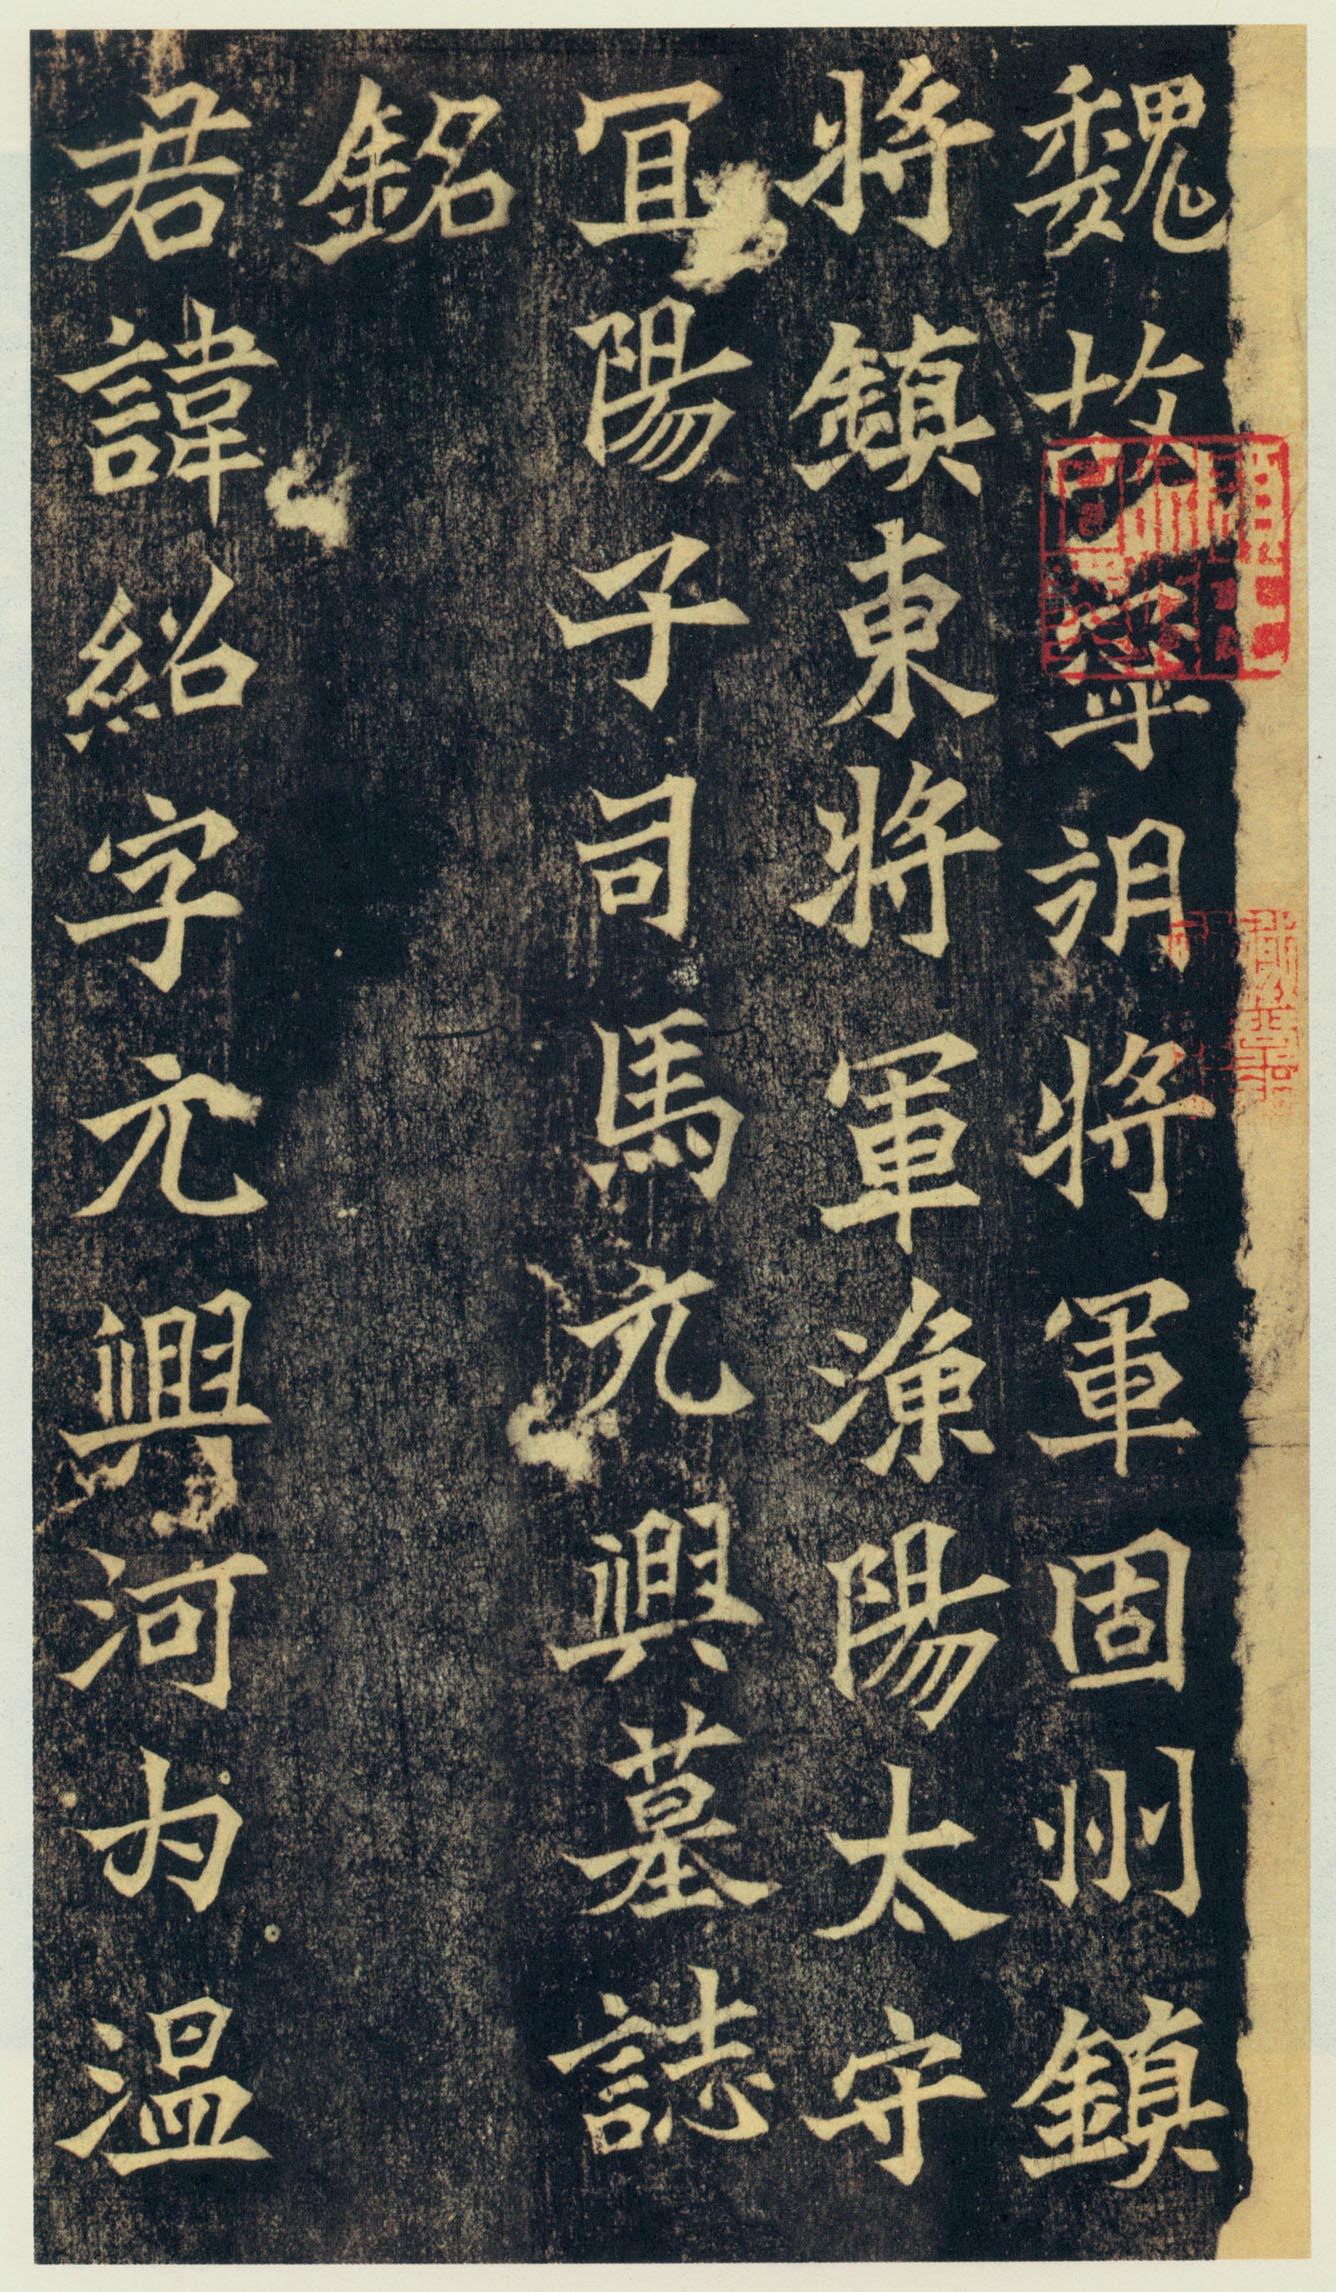 魏故寧朔將軍固州鎮
將鎮東將軍漁陽太守
冝陽子司馬元興墓誌
銘
君諱紹字元興河內溫